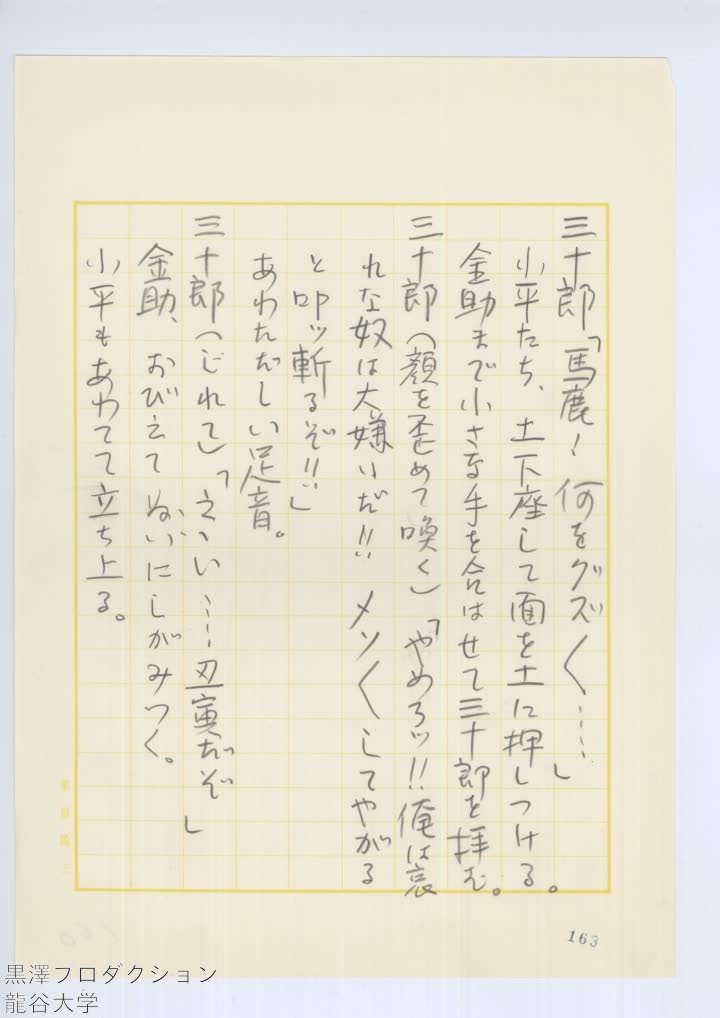 三十郎「馬鹿！何をグズ〱……」
小平たち、土下座して面を土に押しつける。
金助まで小さな手を合はせて三十郎を拝む。
三十郎（顔を歪めて喚く）「やめろッ!!俺は哀
れな奴は大嫌いだ!!メソ〱してやがる
と叩ッ斬るぞ!!」
あわたゞしい足音。
三十郎（じれて）「えゝい……丑寅だぞ」
金助、おびえてぬいにしがみつく。
小平もあわてて立ち上る。
163
黒澤プロダクション
龍谷大学